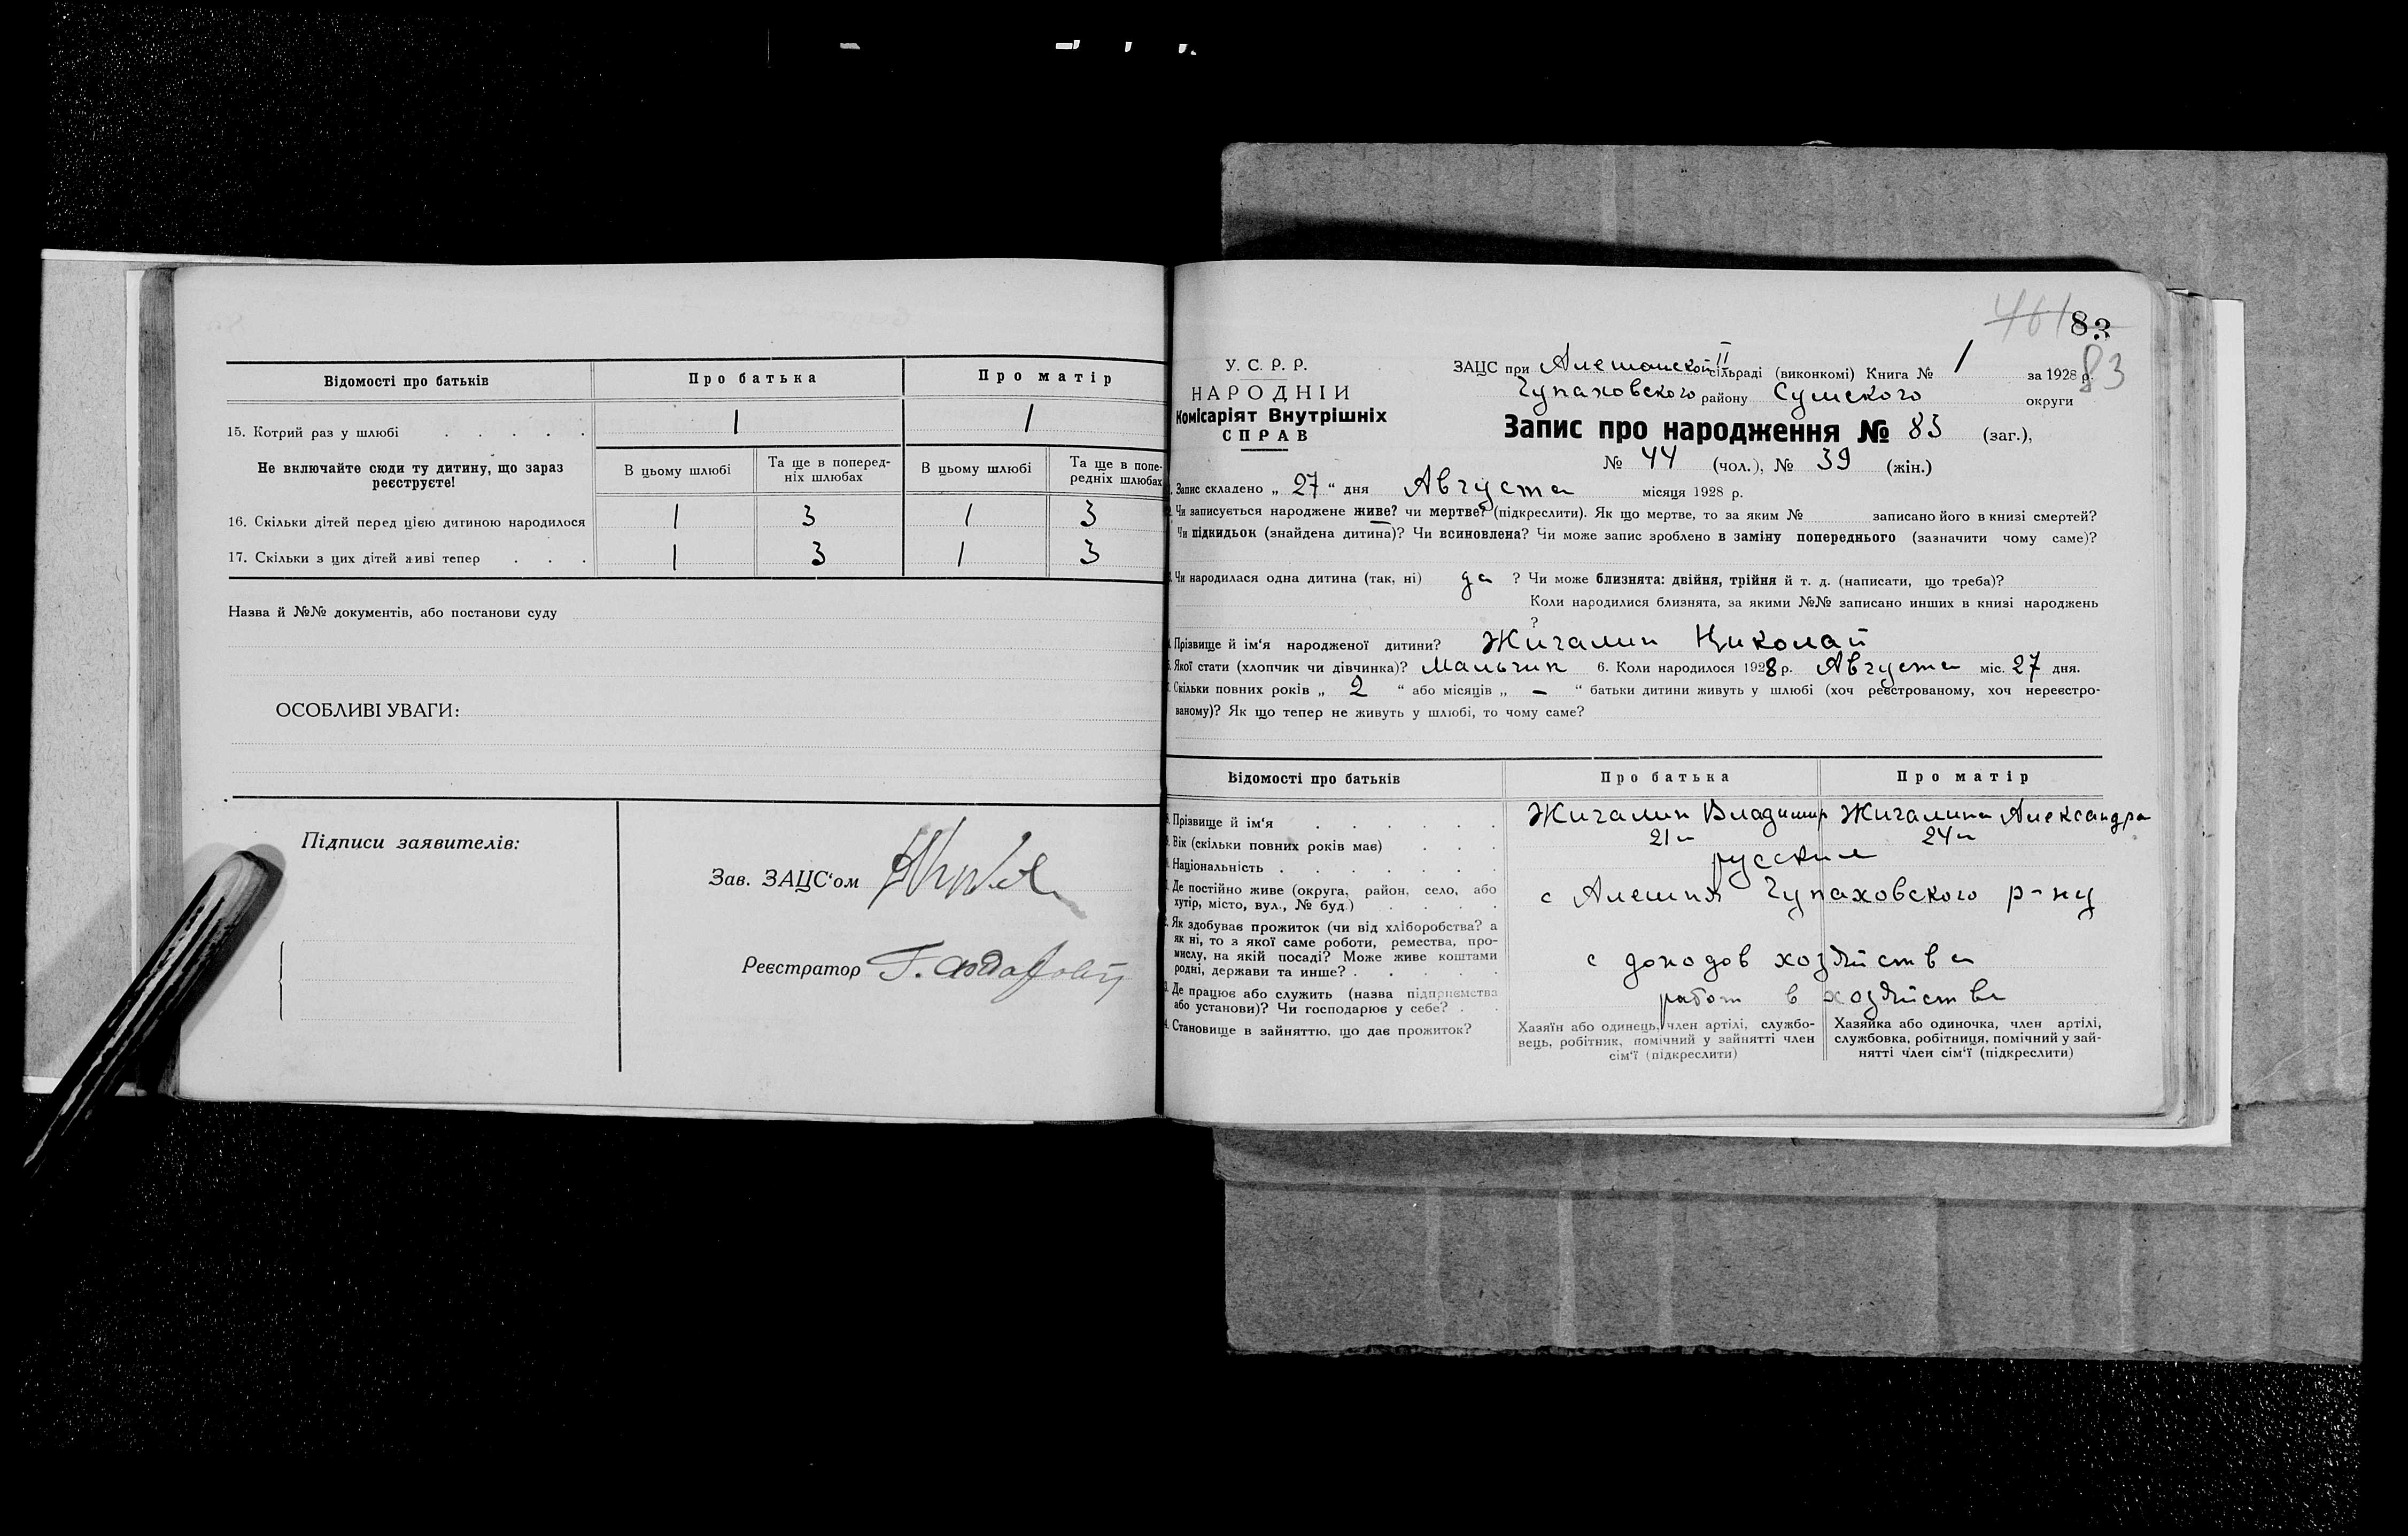 Відомості про батьків Про батька Про матір
15. Котрий раз у шлюбі . . . . . 1 1
Не включайте сюди ту дитину, що зараз реєструєте!
В цьому шлюбі Та ще в попередніх шлюбах В цьому шлюбі Та ще в попередніх шлюбах
16. Скільки дітей перед цією дитиною народилося 1 3 1 3
17. Скільки з цих дітей живі тепер . . . 1 3 1 3
Назва й №№ документів, або постанови суду
ОСОБЛИВІ УВАГИ:
Підписи заявителів:
Зав. ЗАЦС‘ом
Реєстратор
461 83
83
У. С. Р. Р.
НАРОДНІЙ
Комісаріят Внутрішніх
СПРАВ
ЗАЦС при Алешанской II сільраді (виконкомі) Книга № 1 за 1928 р.
Чупаховского району Сумского округи
Запис про народження № 83 (заг.),
№ 44 (чол.), № 39 (жін.)
Запис складено „ 27 “ дня Августа місяця 1928 р.
Чи записується народжене живе? чи мертве? (підкреслити). Як що мертве, то за яким № записано його в книзі смертей?
Чи підкидьок (знайдена дитина)? Чи всиновлена? Чи може запис зроблено в заміну попереднього (зазначити чому саме)?
Чи народилася одна дитина (так, ні) да ? Чи може близнята: двійня, трійня й т. д. (написати, що треба)?
Коли народилися близнята, за якими №№ записано инших в книзі народжень
?
Прізвище й ім‘я народженої дитини? Жигалин Николай
Якої стати (хлопчик чи дівчинка)? Мальчик 6. Коли народилося 1928 р. Августа міс. 27 дня.
Скільки повних років „ 2 “ або місяців „ – “ батьки дитини живуть у шлюбі (хоч реєстрованому, хоч нереєстро-
ваному)? Як що тепер не живуть у шлюбі, то чому саме?
Відомості про батьків Про батька Про матір
Прізвище й ім‘я . . . . . . Жигалин Владимир Жигалина Александра
Вік (скільки повних років має) . . . 21 л 24 л
Національність . . . . . . . русские
Де постійно живе (округа, район, село, або
хутір, місто, вул., № буд.) . . . . с Алешня Чупаховского р-ну
Як здобуває прожиток (чи від хліборобства? а
як ні, то з якої саме роботи, ремества, про-
мислу, на якій посаді? Може живе коштами
родні, держави та инше? . . . . . с доходов хозяйства
Де працює або служить (назва підприємства
або установи)? Чи господарює у себе? . . работ в хозяйстве
Становище в зайняттю, що дає прожиток?
Хазяїн або одинець, член артілі, службо-
вець, робітник, помічний у зайнятті член
сім‘ї (підкреслити)
Хазяйка або одиночка, член артілі,
службовка, робітниця, помічний у зай-
нятті член сім‘ї (підкреслити)